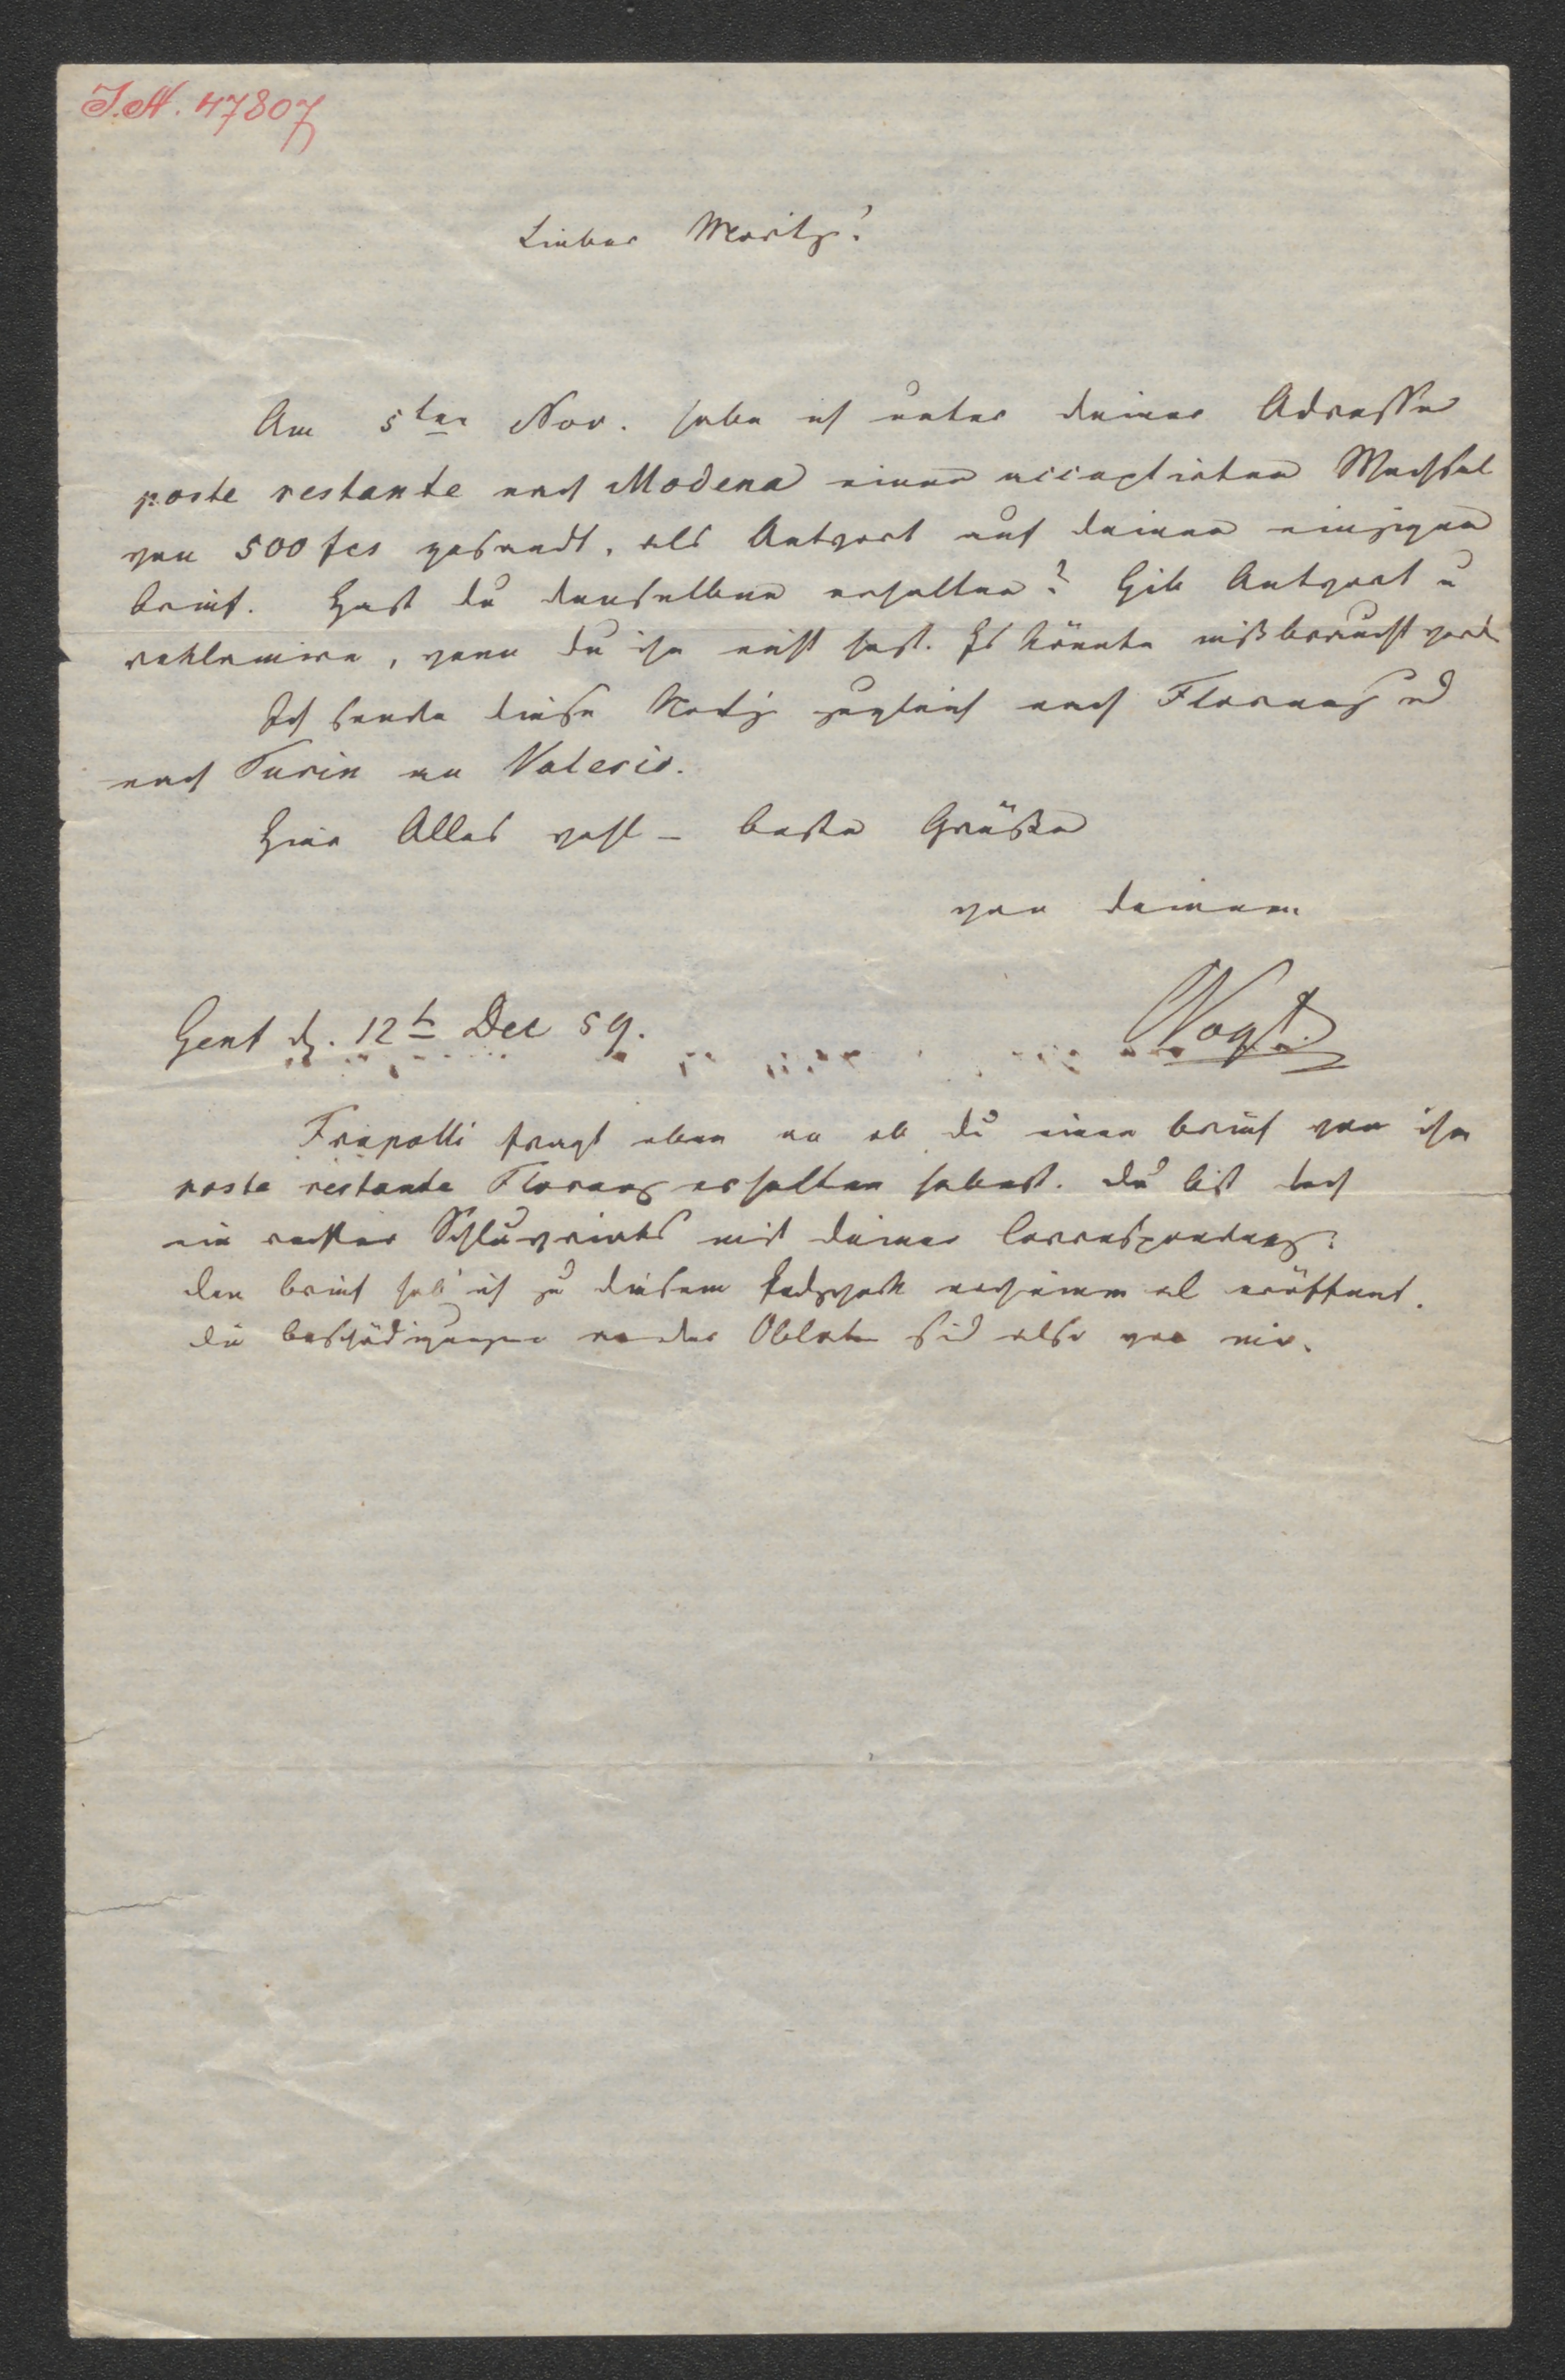 I.N. 47807
Lieber Moritz!
Am 5ten Nov. habe ich unter deiner Adresse
poste restante nach Modena einen acceptirten Wechsel
von 500 fcs gesandt, als Antwort auf deinen einzigen
Brief. Hast du denselben erhalten? Gib Antwort u
reklamire, wenn du ihn nicht hast. Es könnte mißbraucht werden
Ich sende diese Notiz zugleich nach Florenz und
nach Turin an Valerio.
Hier Alles wohl – beste Grüße
von deinem
CVogt.
Genf d. 12t Dec 59.
Frapolli fragt eben an ob du einen Brief von ihm
poste restante Florenz erhalten habest. Du bist doch
ein rechter mit deiner Correspondenz.
Den Brief hab' ich zu diesem noch einmal eröffnet.
Die Beschädigungen an der Oblate sind also von mir.